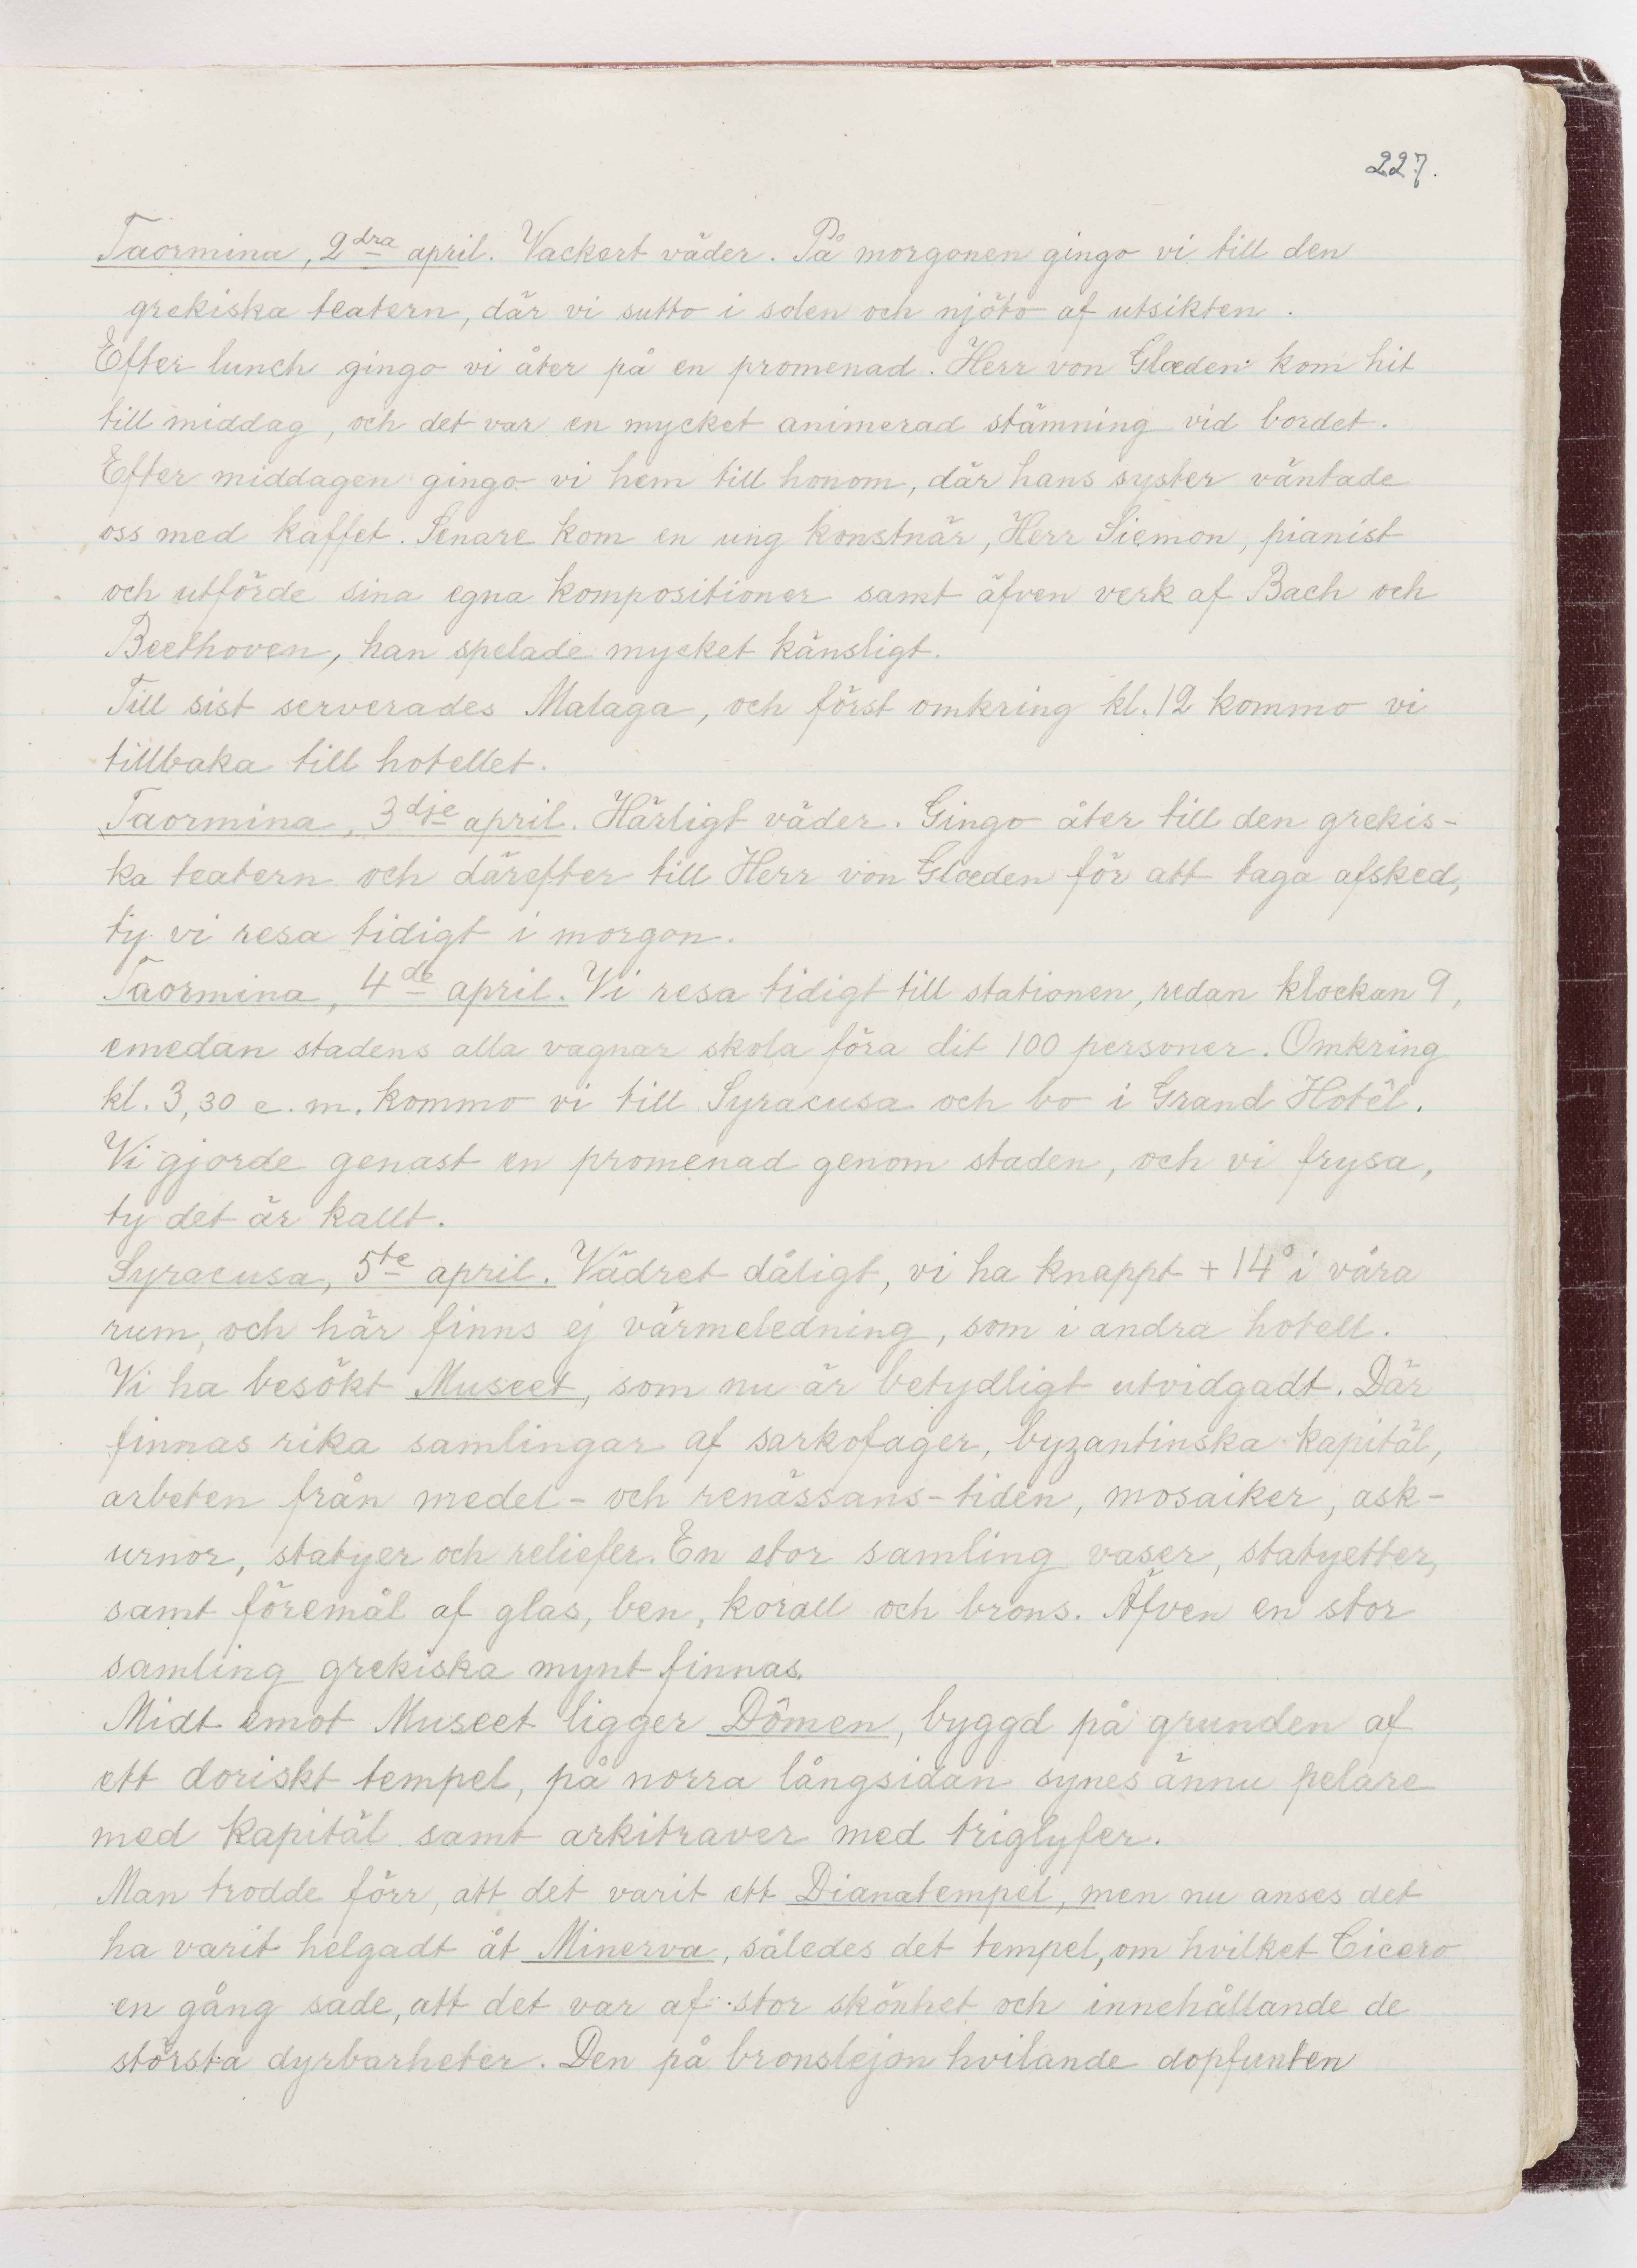 227.
Taormina, 2dra april. Vackert väder. På morgonen gingo vi till den
grekiska teatern, där vi sutto i solen och njöto af utsikten.
Efter lunch gingo vi åter på en promenad. Herr von Glœden kom hit
till middag, och det var en mycket animerad stämning vid bordet.
Efter middagen gingo vi hem till honom, där hans syster väntade
oss med kaffet. Senare kom en ung konstnär, Herr Siemon, pianist
och utförde sina egna kompositioner samt äfven verk af Bach och
Beethoven, han spelade mycket känsligt.
Till sist serverades Malaga, och först omkring kl. 12 kommo vi
tillbaka till hotellet.
Taormina, 3dje april. Härligt väder. Gingo åter till den grekis-
ka teatern och därefter till Herr von Glœden för att taga afsked,
ty vi resa tidigt i morgon.
Taormina, 4de april. Vi resa tidigt till stationen, redan klockan 9,
emedan stadens alla vagnar skola föra dit 100 personer. Omkring
kl. 3,30 e. m. kommo vi till Syracusa och bo i Grand Hotêl.
Vi gjorde genast en promenad genom staden, och vi frysa,
ty det är kallt.
Syracusa, 5te april. Vädret dåligt, vi ha knappt + 14° i våra
rum, och här finns ej värmeledning, som i andra hotell.
Vi ha besökt Museet, som nu är betydligt utvidgadt. Där
finnas rika samlingar af sarkofager, byzantinska kapitäl,
arbeten från medel- och renässans-tiden, mosaiker, ask-
urnor, statyer och reliefer. En stor samling vaser, statyetter,
samt föremål af glas, ben, korall och brons. Äfven en stor
samling grekiska mynt finnas.
Midt emot Museet ligger Dômen, byggd på grunden af
ett doriskt tempel, på norra långsidan synes ännu pelare
med kapitäl samt arkitraver med triglyfer.
Man trodde förr, att det varit ett Dianatempel, men nu anses det
ha varit helgadt åt Minerva, således det tempel, om hvilket Cicero
en gång sade, att det var af stor skönhet och innehållande de
största dyrbarheter. Den på bronslejon hvilande dopfunten